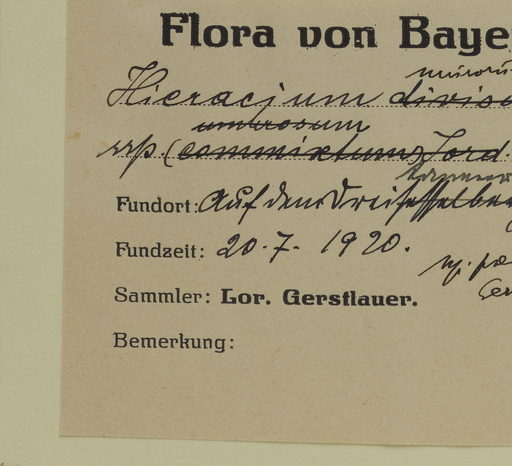 Flora von Baye
Hieracium divis
umbrosum
ssp. (commixtum Jord.
Fundort: Auf dem Dreisesselber
Fundzeit: 20. 7. 1920.
Sammler: Lor. Gerstlauer.
Bemerkung: